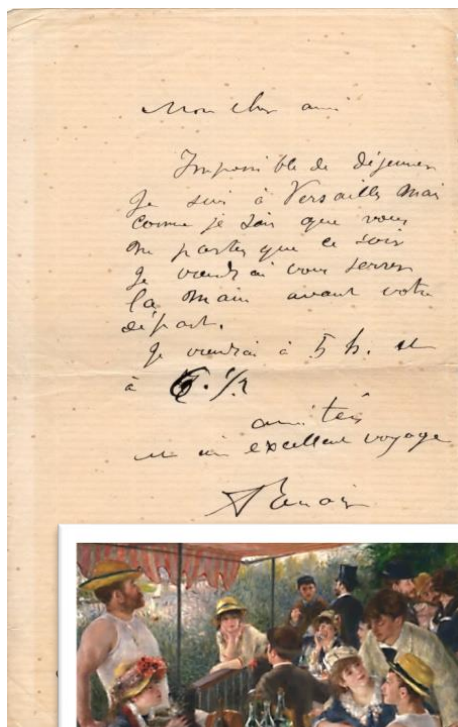 Mon cher ami
Impossible de déjeuner
Je suis à Versailles mais
comme je sais que vous
ne partez que ce soir
Je viendrai vous serrer
la main avant votre
départ.
Je viendrai à 5 h. et
à 6. 1/2
amitiés
excellent voyage
Renoir